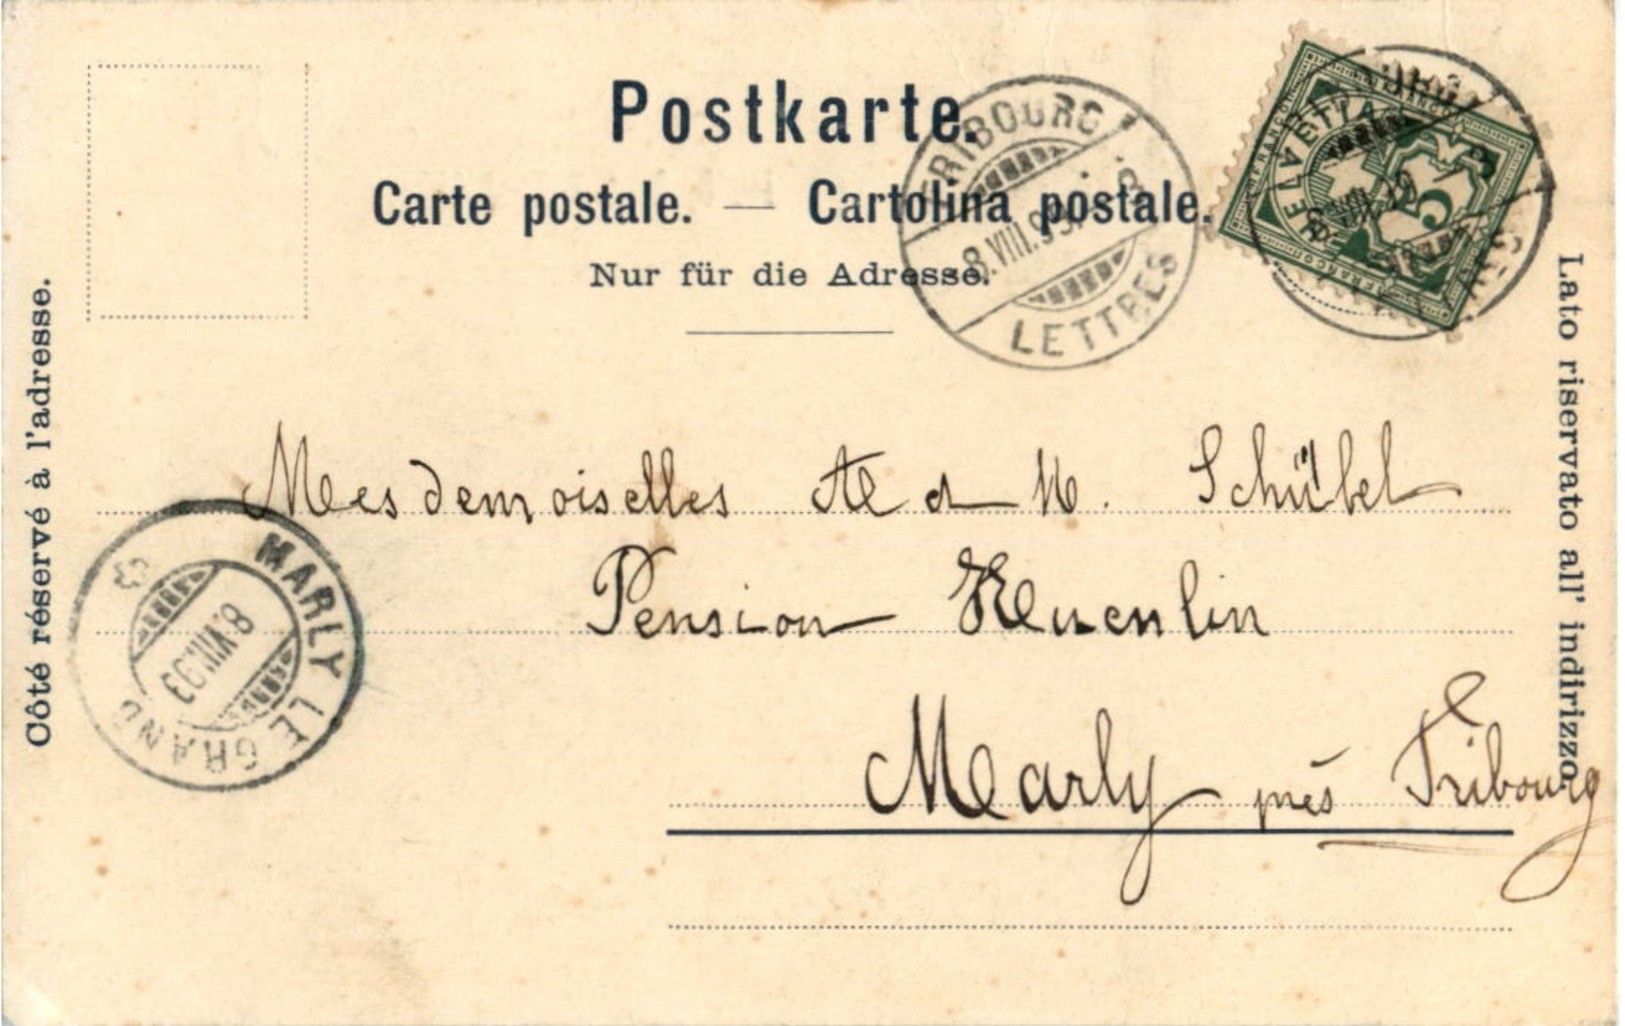 Postkarte.
Carte postale. — Cartolina postale.
Nur für die Adresse.
Côté réservé à l'adresse.
Lato riservato all' indirizzo.
FRIBOURG
8.VIII.99.
LETTRES
HELVETIA
FRANCO
5
Mesdemoiselles
Schübel
Pension Kuenlin
Marly près Fribourg
MARLY LE GRAND
8.VIII.99